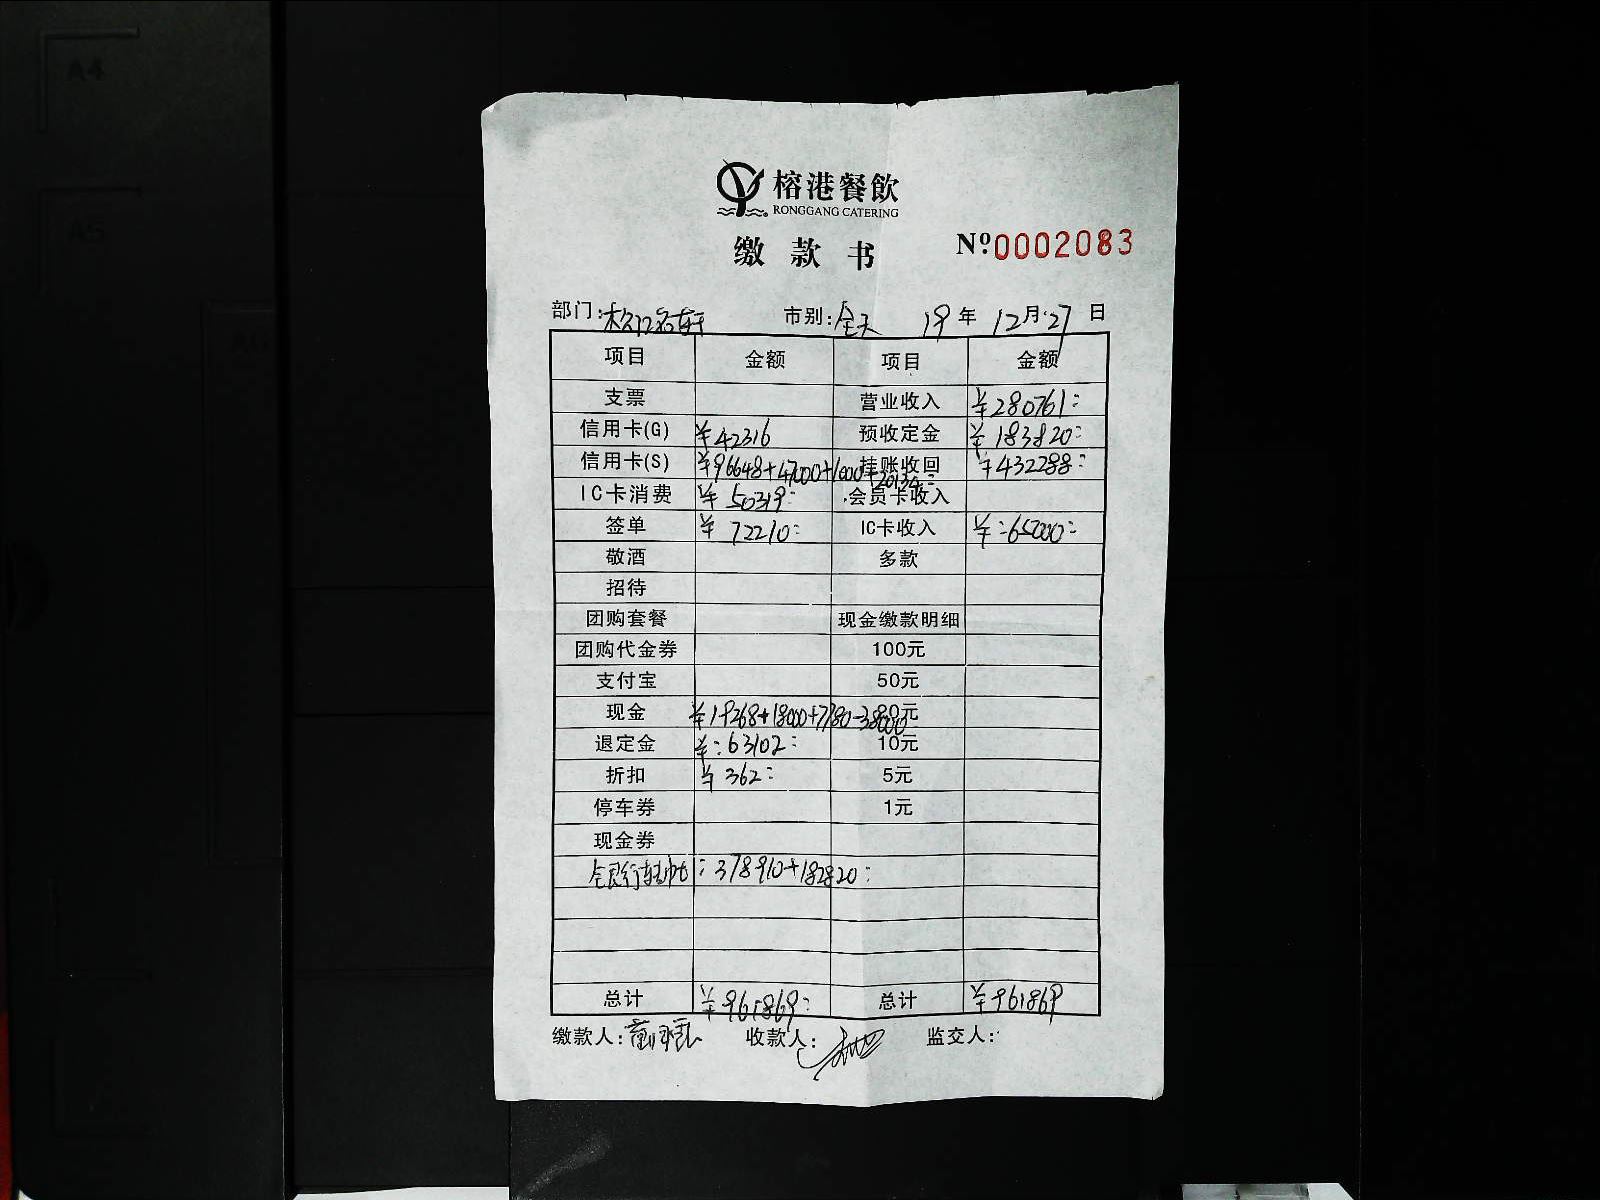 榕港餐飲
RONGGANG CATERING
缴款书 Nº0002083
部门: 市别:全天 19年12月27日
项目 金额 项目 金额
支票 营业收入 ¥280761:
信用卡(G) ¥42316 预收定金 ¥183820:
信用卡(S) ¥96648+47000+1000+20134: 挂账收回 ¥432288:
IC卡消费 ¥50319: 会员卡收入
签单 ¥72210: IC卡收入 ¥:65000:
敬酒 多款
招待
团购套餐 现金缴款明细
团购代金券 100元
支付宝 50元
现金 ¥19268+18000+7780-38000 20元
退定金 ¥:63102: 10元
折扣 ¥362: 5元
停车券 1元
现金券
:378910+182820:
总计 ¥961869: 总计 ¥961869
缴款人: 收款人: 监交人: